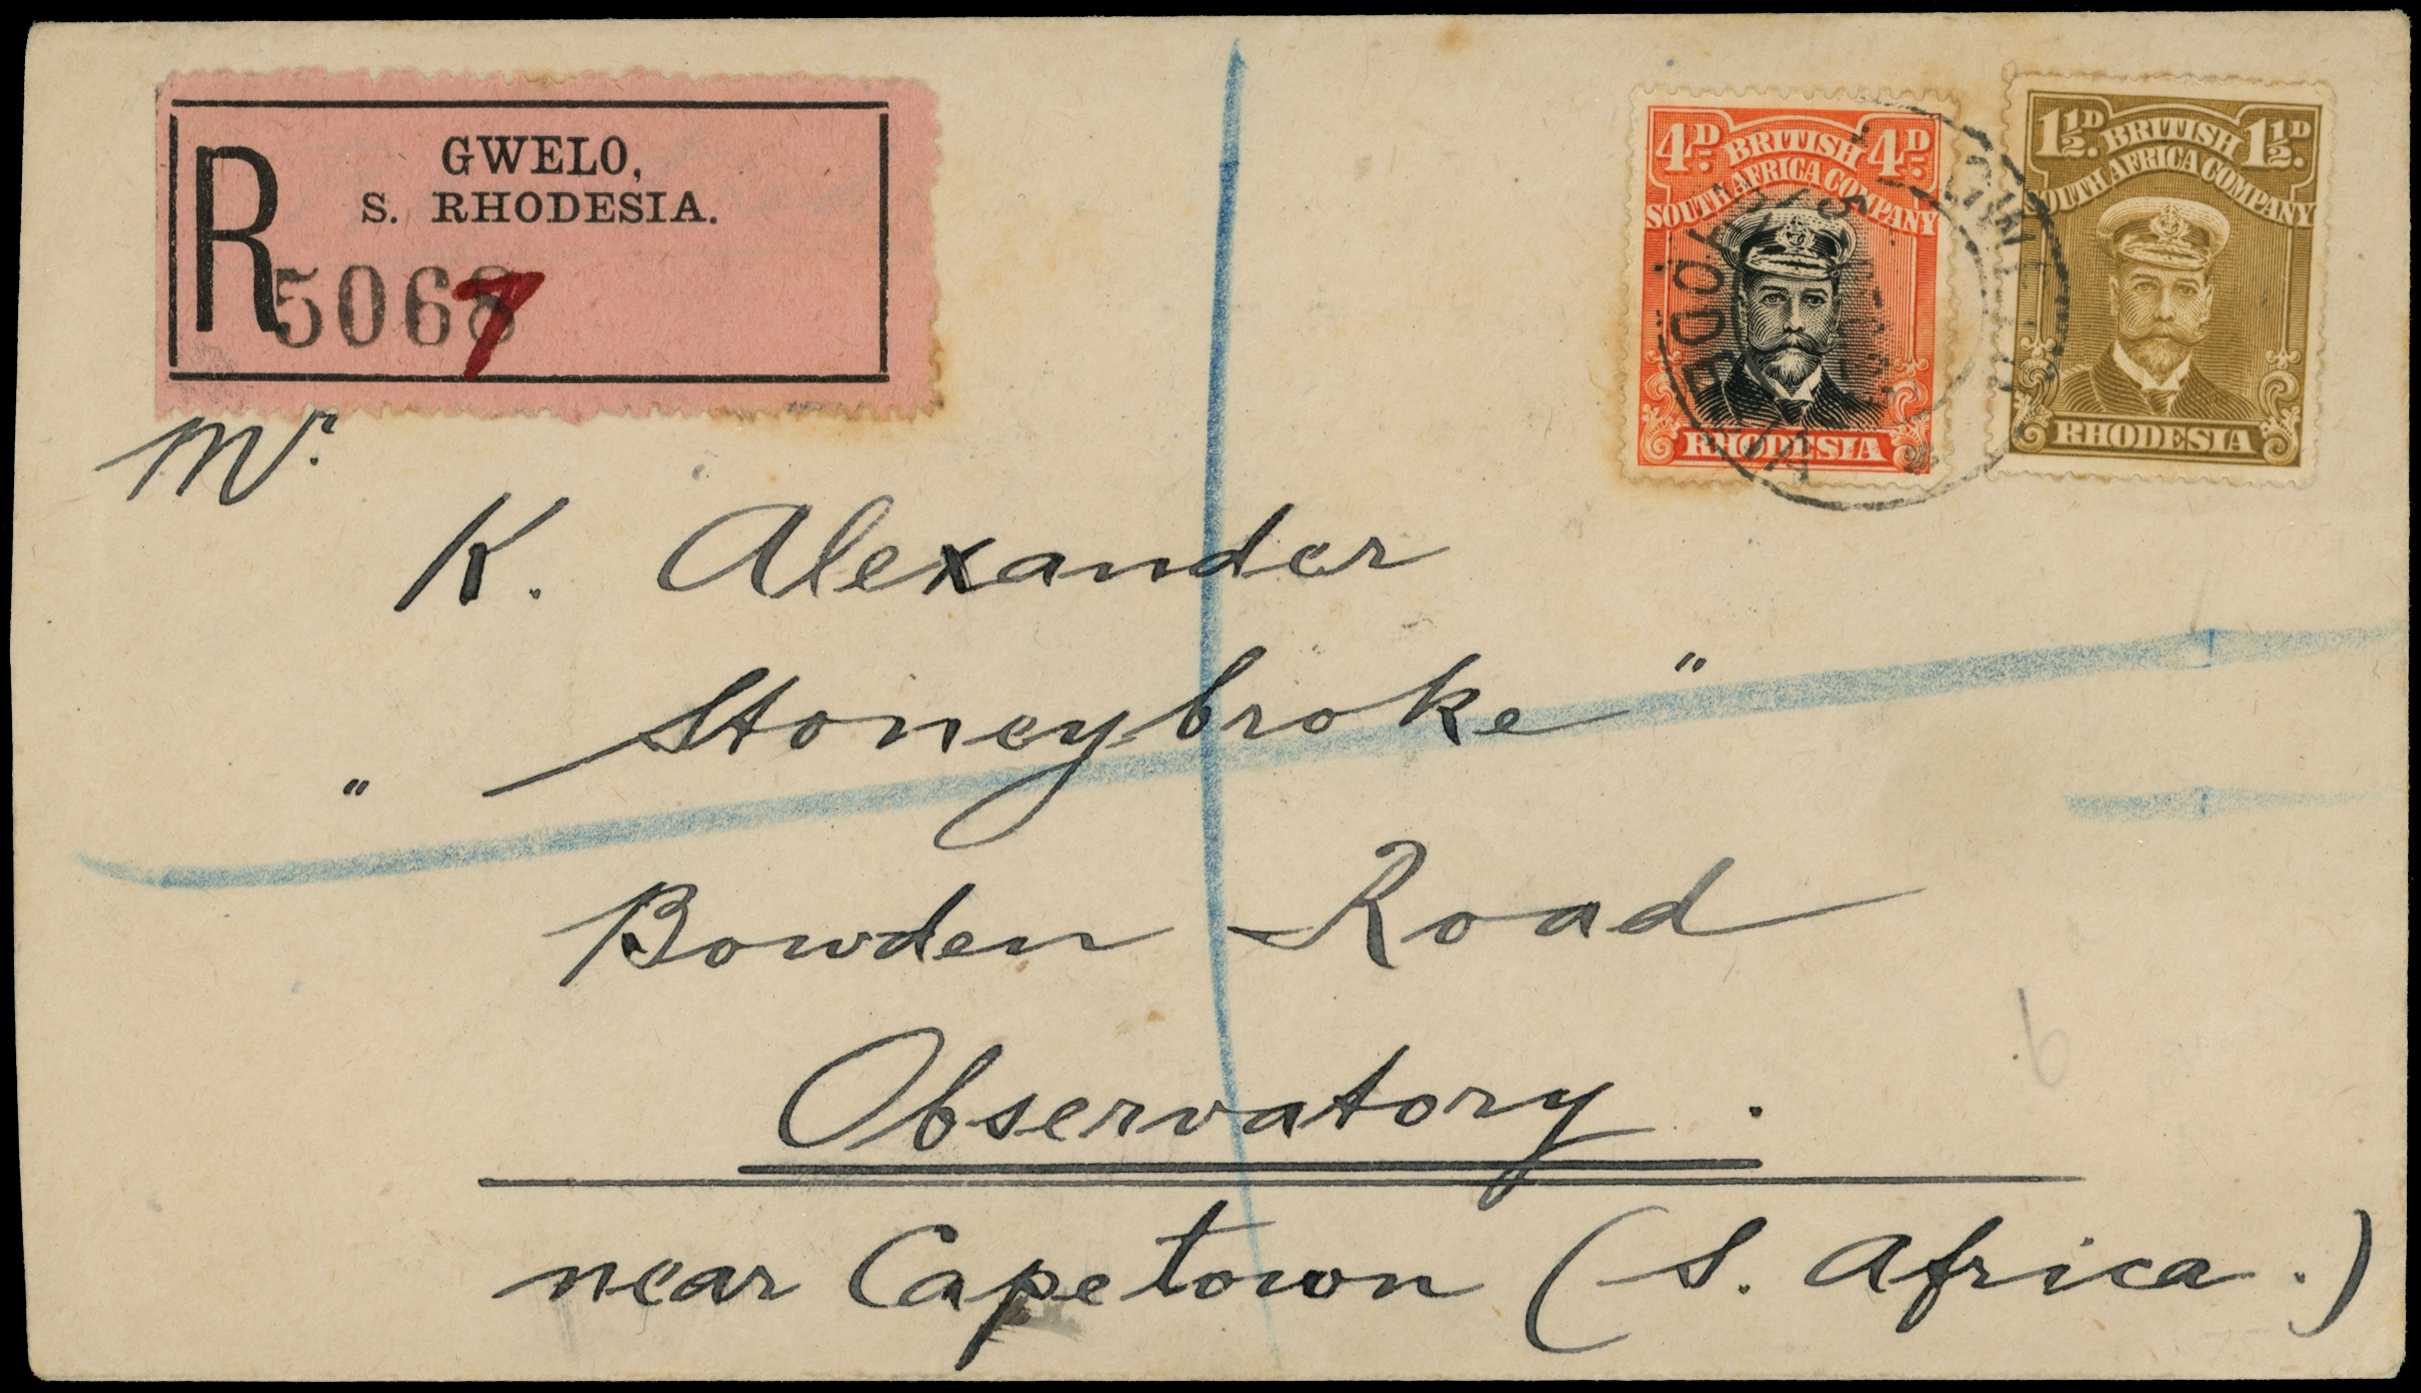 GWELO,
S. RHODESIA.
R
5068
7
4D. BRITISH 4D.
SOUTH AFRICA COMPANY
RHODESIA
1½D. BRITISH 1½D.
SOUTH AFRICA COMPANY
RHODESIA
Mr.
K. Alexander
" Stoneybroke "
Bowden Road
Observatory.
near Capetown (S. Africa.)